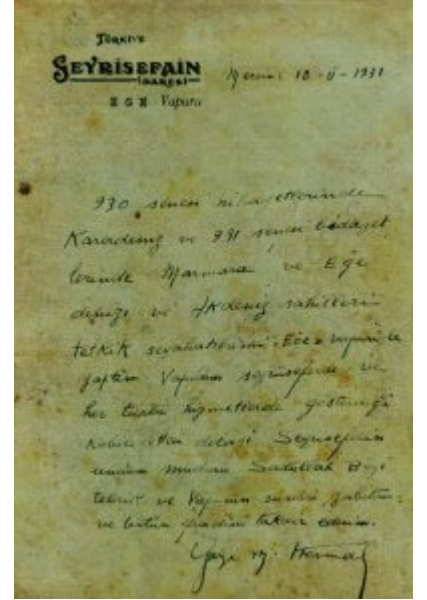 TÜRKİYE
SEYRİSEFAİN
İDARESİ
EGE Vapuru
Mersin: 10-II-1931
930 senesi nihayetlerinde
Karadeniz ve 931 senesi bidayet
lerinde Marmara ve Ege
denizi ve Akdeniz sahillerini
tetkik seyahatlerimi Ege vapuru ile
yaptım. Vapurun seyrüseferde ve
her türlü hizmetlerde gösterdiği
dolayı Seyrisefain
umum müdürü Sadullah Beyi
tebrik ve Vapurun süvari zabitanı
ve bütün efradını takdir ederim.
Gazi M. Kemal